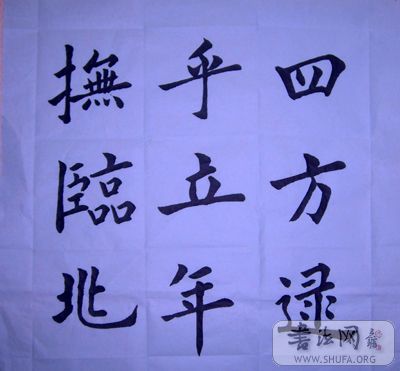 四方逮
乎立年
撫臨兆
書法网
WWW.SHUFA.ORG